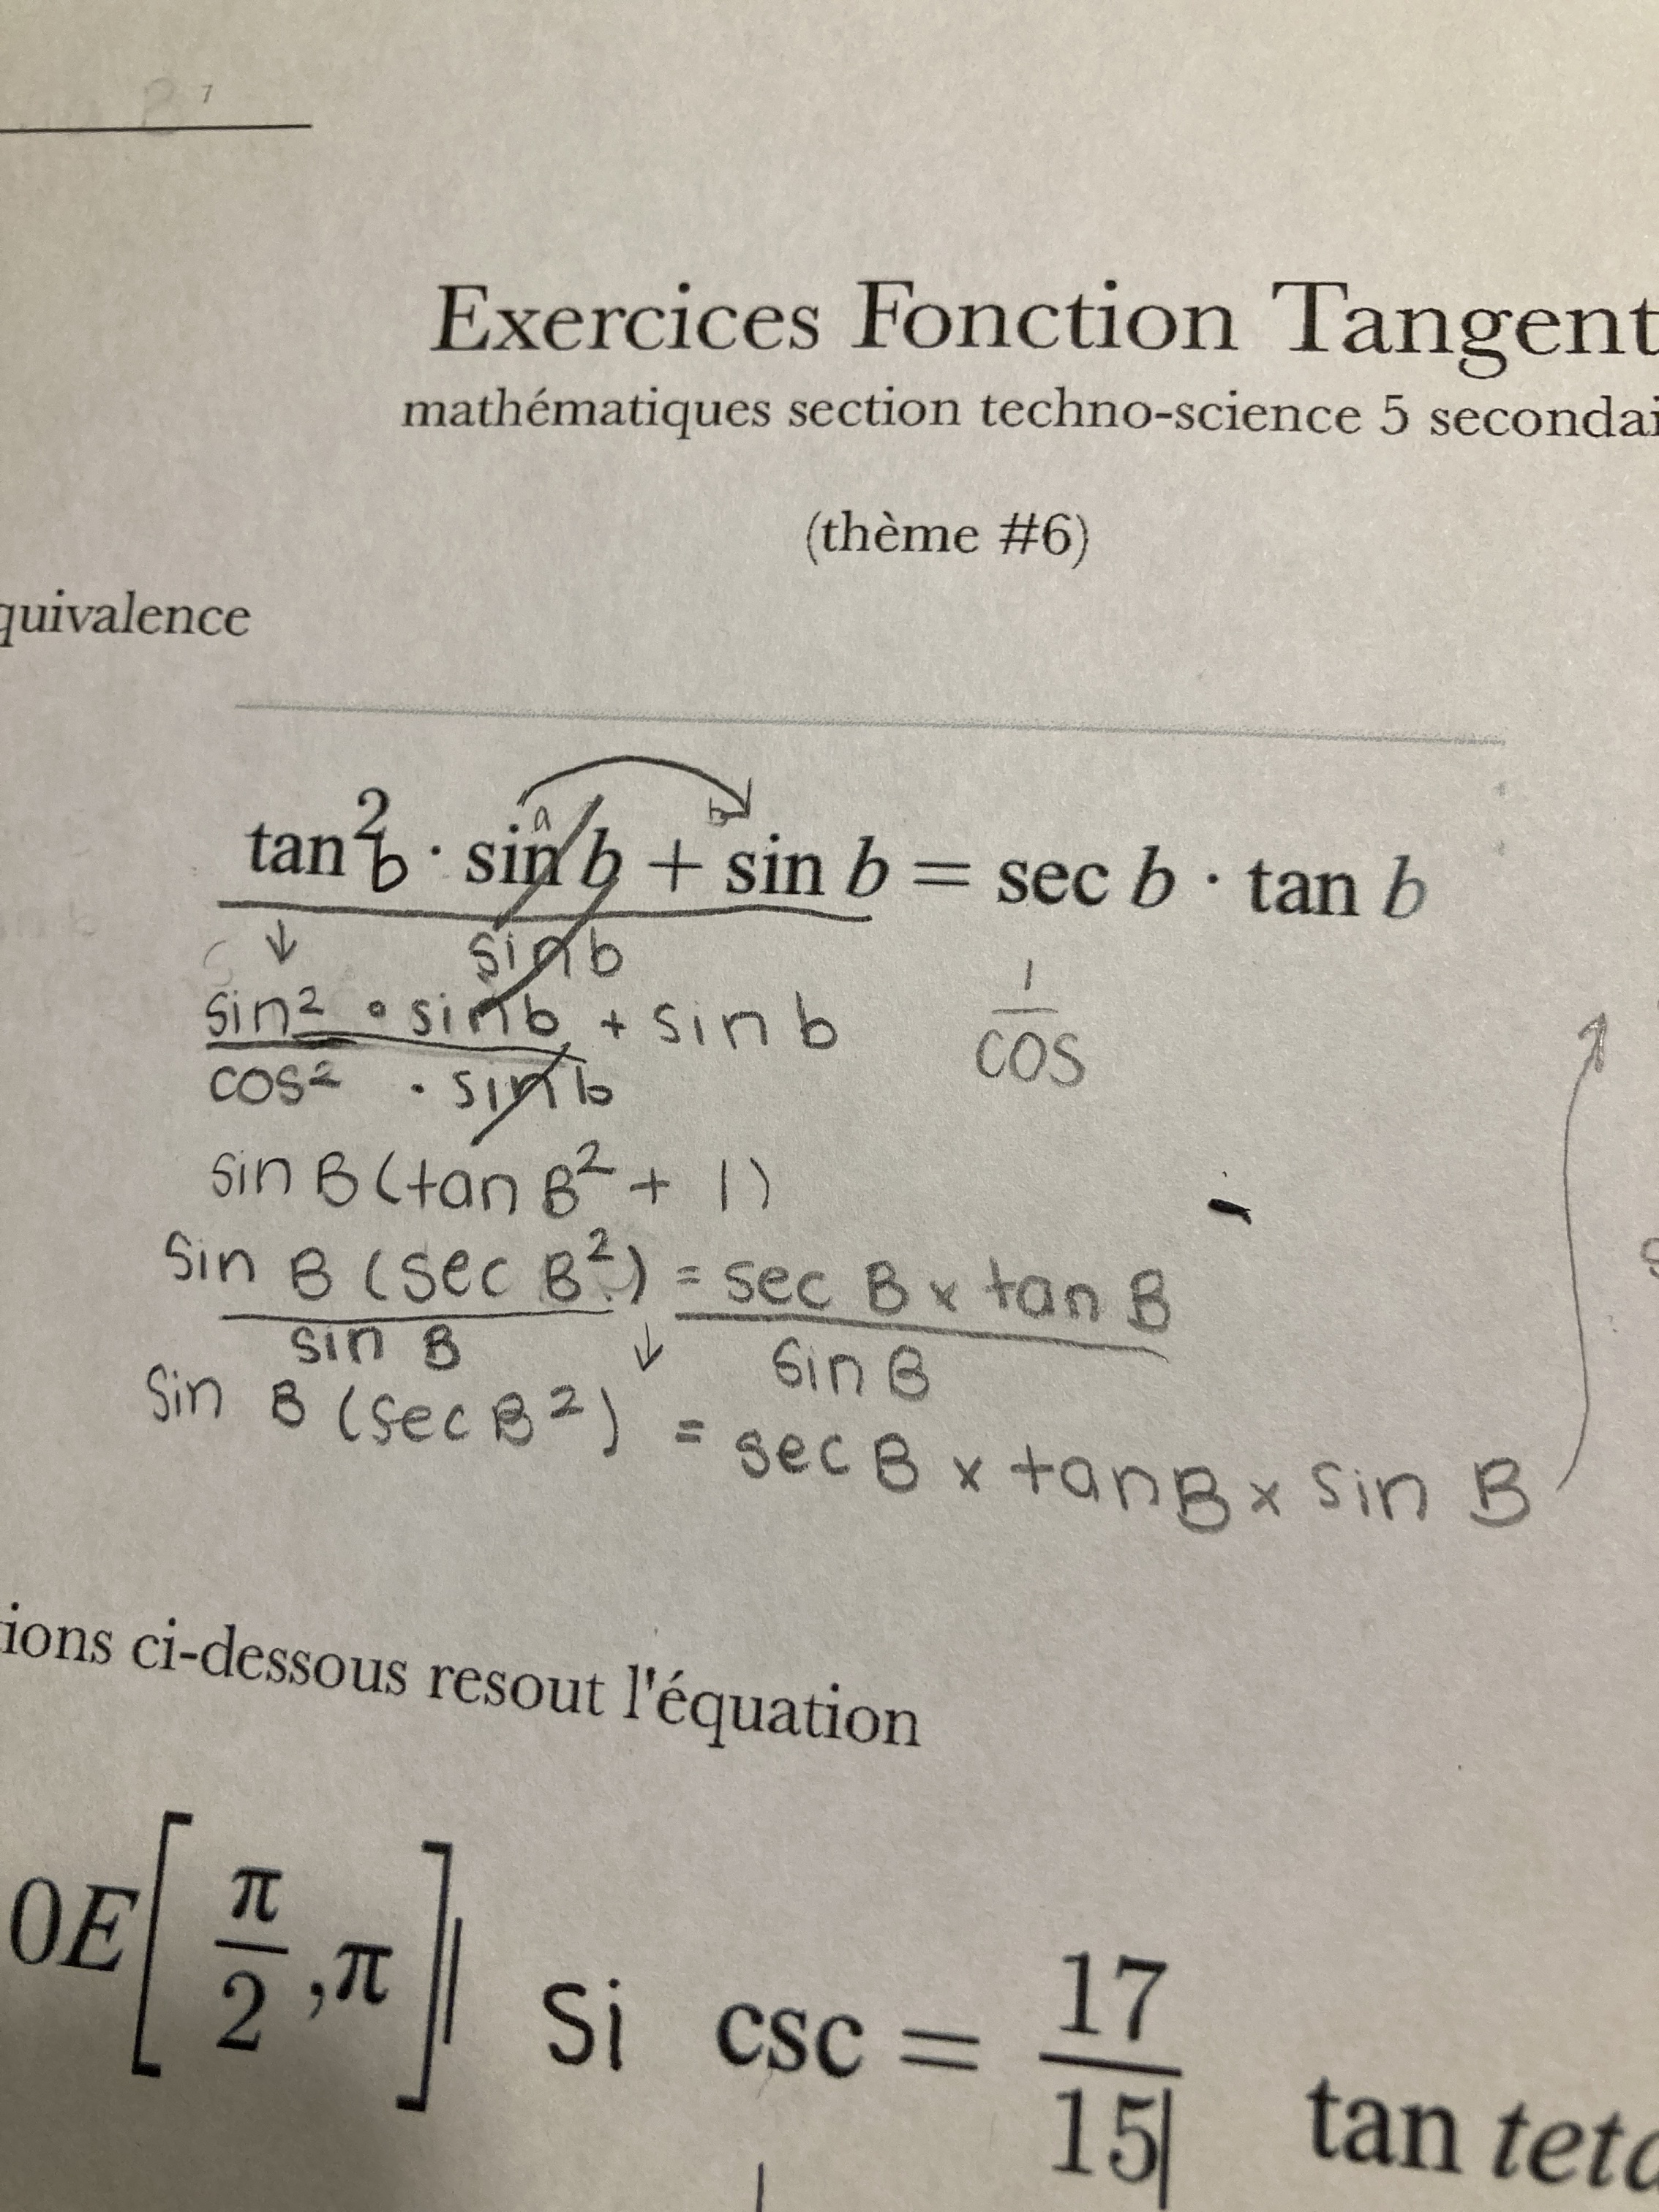 Exercices Fonction Tangent
mathématiques section techno-science 5 secondai
(thème #6)
quivalence
a b
tan²b · sin b + sin b = sec b · tan b
sin b
sin² · sin b + sin b
cos² · sin b
1
cos
sin B (tan B² + 1)
sin B (sec B²) = sec B x tan B
sin B sin B
sin B (sec B²) = sec B x tan B x sin B
tions ci-dessous resout l'équation
0E[π/2,π] Si csc = 17/15 tan teta